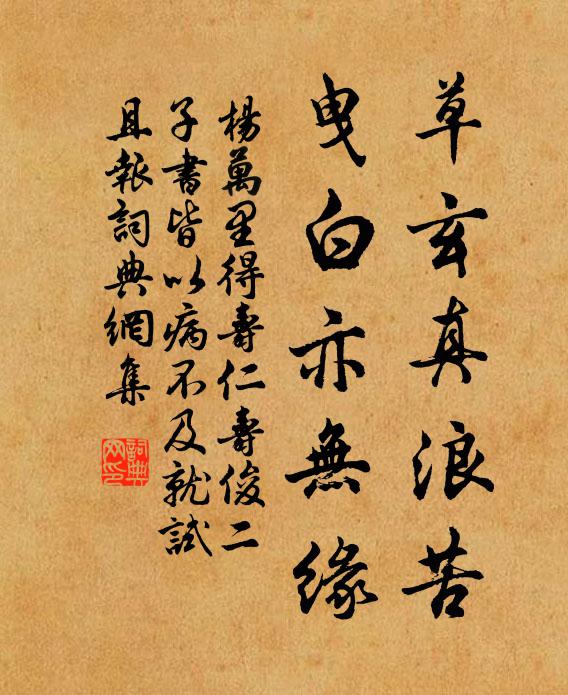 草玄真浪苦
曳白亦無緣
楊萬里得壽仁壽俊二
子書皆以病不及就試
且報詞典網集
詞典
网印